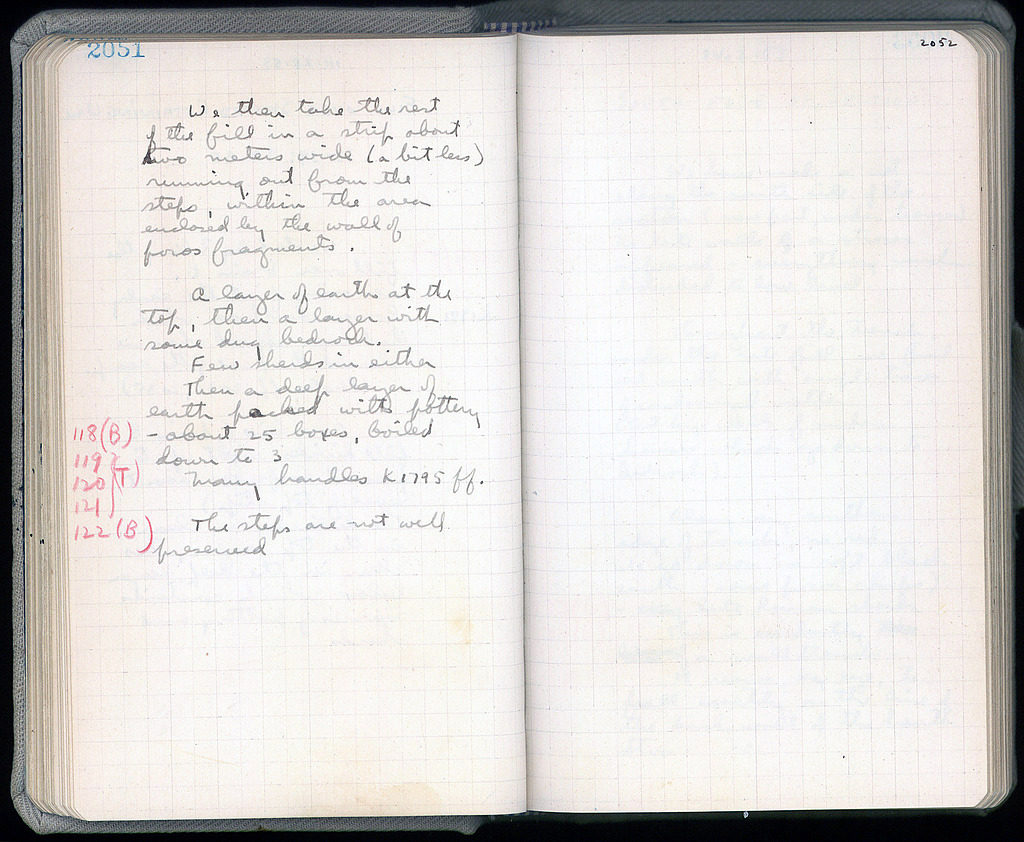 2051
We then take the rest
of the fill in a strip about
two meters wide (a bit less)
running out from the
steps, within the area
enclosed by the wall of
poros fragments.
A layer of earth at the
top, then a layer with
some dug bedrock.
Few sherds in either
Then a deep layer of
earth packed with pottery
118 (B) - about 25 boxes, boiled
119 down to 3
120 (T) Many handles K1795 ff.
121
122 (B) The steps are not well
preserved
2052